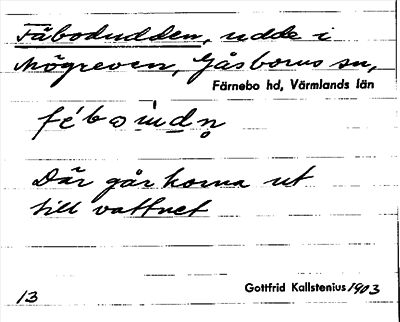 Fäbodudden, udde i
Mögreven, Gåsborns sn,
Färnebo hd, Värmlands län
Där går korna ut
till vattnet
13
Gottfrid Kallstenius 1903